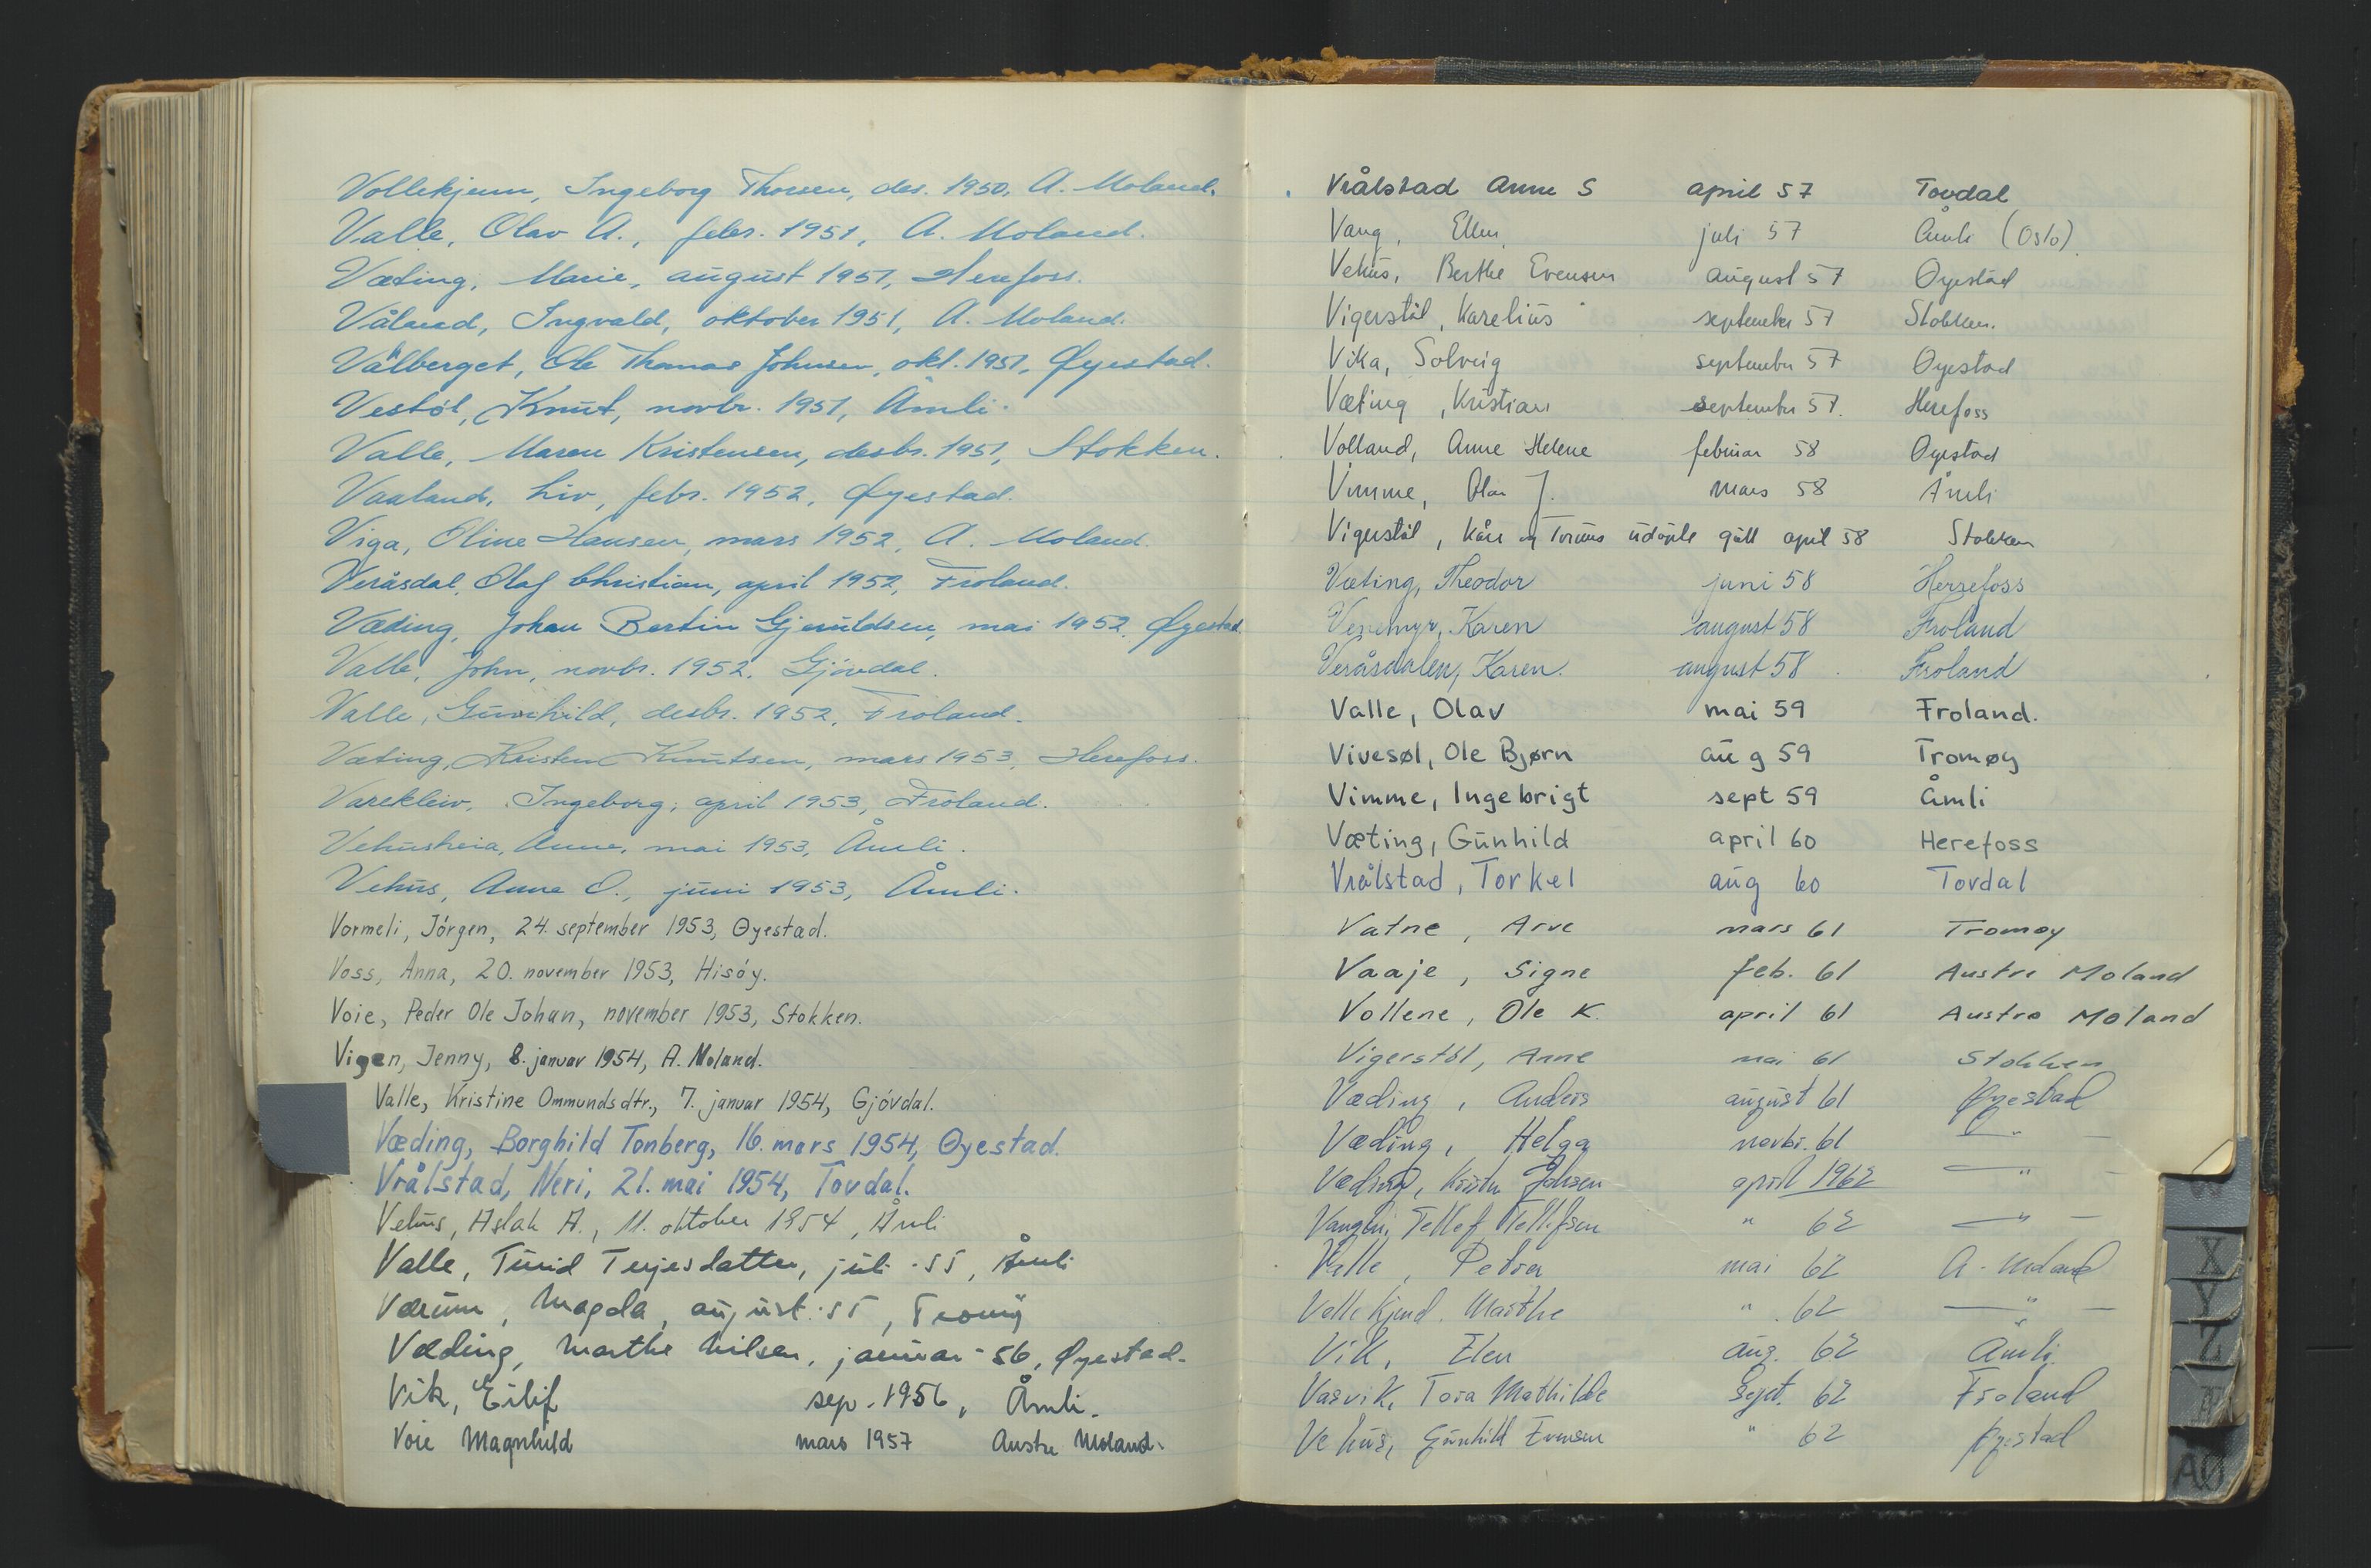 Vollekjenn, Ingeborg Thorsen, des. 1950, A. Moland.
Valle, Olav A., febr. 1951, A. Moland.
Væting, Marie, august 1951, Herefoss.
Våland, Ingvald, oktober 1951, A. Moland.
Vålberget, Ole Thomas Johnsen, okt. 1951, Øyestad.
Vestöl, Knut, novbr. 1951, Åmli.
Valle, Maren Kristensen, desbr. 1951, Stokken.
Vaaland, Liv, febr. 1952, Øyestad.
Viga, Oline Hansen, mars 1952, A. Moland.
Veråsdal, Olaf Christian, april 1952, Froland.
Væding, Johan Bertin Gjeruldsen, mai 1952, Øyestad.
Valle, John, novbr. 1952, Gjövdal.
Valle, Gunhild, desbr. 1952, Froland.
Væting, Kristen Knutsen, mars 1953, Herefoss.
Varekleiv, Ingeborg, april 1953, Froland.
Vehusheia, Anne, mai 1953, Åmli.
Vehus, Anne O., juni 1953, Åmli.
Vormeli, Jörgen, 24. september 1953, Øyestad.
Voss, Anna, 20. november 1953, Hisöy.
Voie, Peder Ole Johan, november 1953, Stokken.
Vigen, Jenny, 8. januar 1954, A. Moland.
Valle, Kristine Ommundsdtr., 7. januar 1954, Gjövdal.
Væding, Borghild Tonberg, 16. mars 1954, Øyestad.
Vrålstad, Neri, 21. mai 1954, Tovdal.
Vehus, Aslak A., 11. oktober 1954, Åmli
Valle, Turid Terjesdatter, juli -55, Åmli
Værum, Magda, august -55, Tromöy
Væding, Marthe Nilsen, januar -56, Øyestad.
Vik, Eilif sep. 1956, Åmli.
Voie Magnhild mars 1957 Austre Moland.
Vrålstad Anne S april 57 Tovdal
Vang, Ellen juli 57 Åmli (Oslo)
Vehus, Berthe Evensen august 57 Øyestad
Vigerstöl, Karelius september 57 Stokken.
Vika, Solveig september 57 Øyestad
Væting, Kristian september 57. Herefoss
Volland, Anne Helene februar 58 Øyestad
Vimme, Olav J. mars 58 Åmli
Vigerstöl, Kåre og Toruns udöpte gutt april 58 Stokken
Væting, Theodor juni 58 Herrefoss
Venemyr, Karen august 58 Froland
Veråsdalen, Karen. august 58 Froland
Valle, Olav mai 59 Froland.
Vivesøl, Ole Bjørn aug 59 Tromøy
Vimme, Ingebrigt sept 59 Åmli
Væting, Gunhild april 60 Herefoss
Vrålstad, Torkel aug 60 Tovdal
Vatne, Arve mars 61 Tromøy
Vaaje, Signe feb. 61 Austre Moland
Vollene, Ole K. april 61 Austre Moland
Vigerstöl, Anne mai 61 Stokken
Væding, Anders august 61 Øyestad
Væding, Helga novbr. 61 — " —
Væding, Kristen Johsen april 1962 — " —
Tellef Tellefsen " 62 — " —
Valle, Petra mai 62 A. Moland
Vollekjend. Marthe " 62 — " —
Vik, Elen aug. 62 Åmli
Vasvik, Tora Mathilde Sept. 62 Froland
Vehus, Gunhild Evensen " 62 Øyestad
X
Y
Z
Æ
AØ